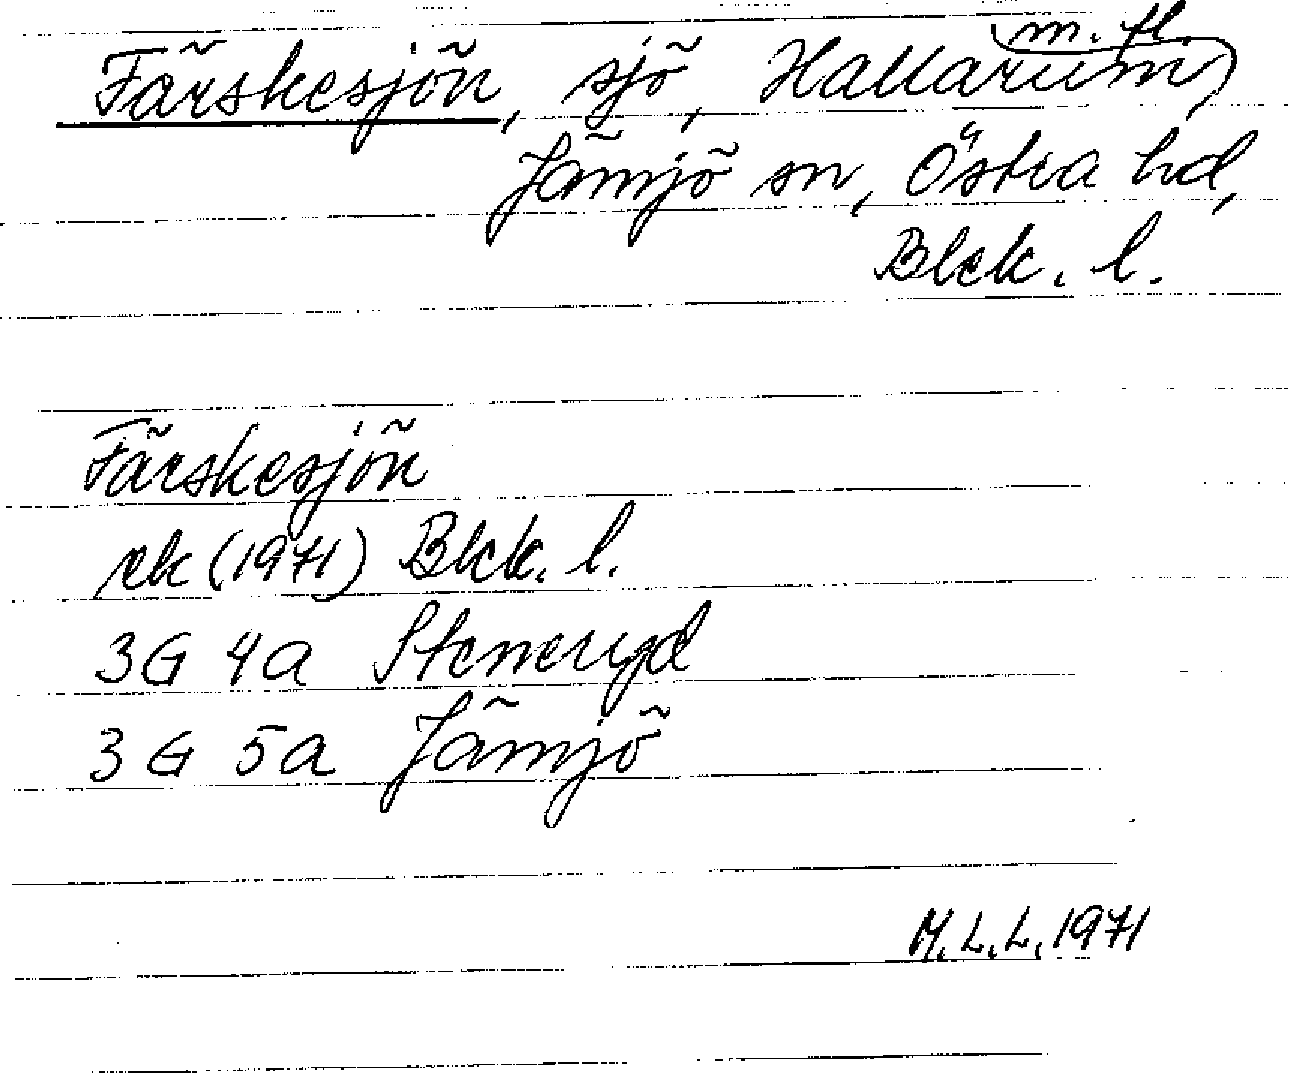 Färskesjön, sjö, Hallarum m. fl.,
Jämjö sn, Östra hd,
Blek. l.
Färskesjön
ek (1971) Blek. l.
3G 4a Steneryd
3G 5a Jämjö
M.L.L. 1971